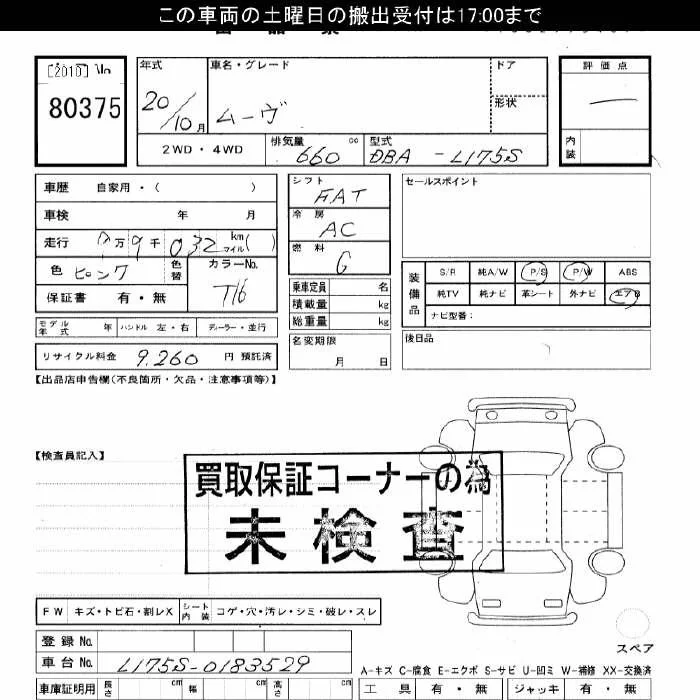 この車両の土曜日の搬出受付は17:00まで
[2010] No
80375
年式
20/10月
車名・グレード
ムーヴ
ドア
形状
評価点
内装
2WD・4WD
排気量
660 cc
型式
DBA - L175S
車歴 自家用・( )
車検 年 月
走行 万9千032 km マイル( )
色 ピンク
色替
カラーNo.
T16
保証書 有・無
シフト
FAT
冷房
AC
燃料
G
乗車定員 名
積載量 kg
総重量 kg
名変期限
月 日
セールスポイント
装備品
S/R 純A/W P/S P/W ABS
純TV 純ナビ 革シート 外ナビ エアB
ナビ型番:
後日品
モデル年式 年 ハンドル 左・右 ディーラー・並行
リサイクル料金 9,260 円 預託済
【出品店申告欄(不良箇所・欠品・注意事項等)】
【検査員記入】
買取保証コーナーの為
未検査
FW キズ・トビ石・割レX シート内装 コゲ・穴・汚レ・シミ・破レ・スレ
スペア
登録No.
車台No. L175S-0183529
A-キズ C-腐食 E-エクボ S-サビ U-凹ミ W-補修 XX-交換済
車庫証明用 長さ cm 幅 cm 高さ cm
工具 有・無 ジャッキ 有・無